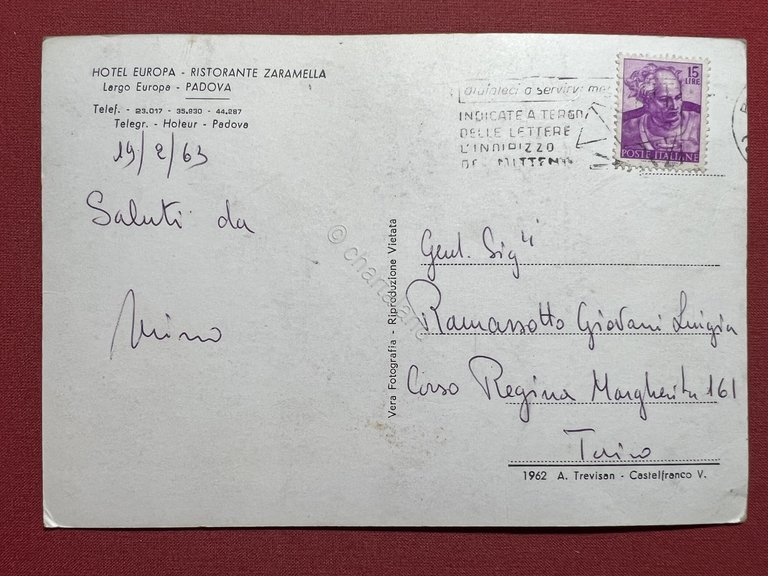 HOTEL EUROPA - RISTORANTE ZARAMELLA
Largo Europa - PADOVA
Telef. - 23.017 - 35.930 - 44.287
Telegr. - Hoteur - Padova
19/2/63
Saluti da
Mino
aiutateci a servirvi me
INDICATE A TERGO
DELLE LETTERE
L'INDIRIZZO
DEL MITTENTE
15
LIRE
POSTE ITALIANE
Vera Fotografia - Riproduzione Vietata
Gent. Sig.ri
Ramassotto Giovani Luigia
Corso Regina Margherita 161
Torino
1962 A. Trevisan - Castelfranco V.